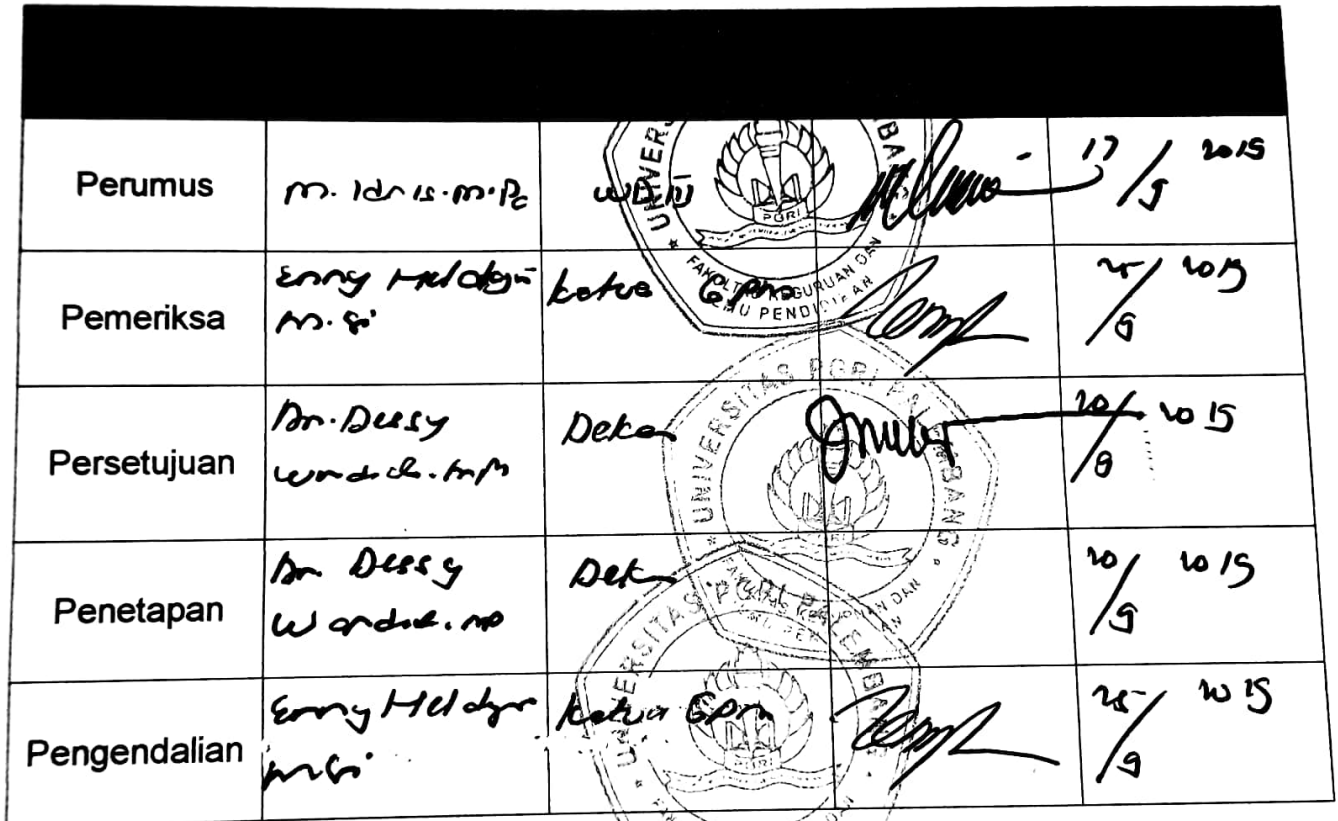 Perumus
M. Idris. M.Pd
WD III
17/9 2019
Pemeriksa
Enny Heldayani
M.Si
Ketua GPM
25/9 2019
Persetujuan
Dr. Dessy
Wardiah. M.Pd
Dekan
20/9 2019
Penetapan
Dr. Dessy
Dekan
20/9 2019
Pengendalian
Enny
M.Si
Ketua GPM
25/9 2019
UNIVERSITAS PGRI PALEMBANG
FAKULTAS KEGURUAN DAN
ILMU PENDIDIKAN
PGRI